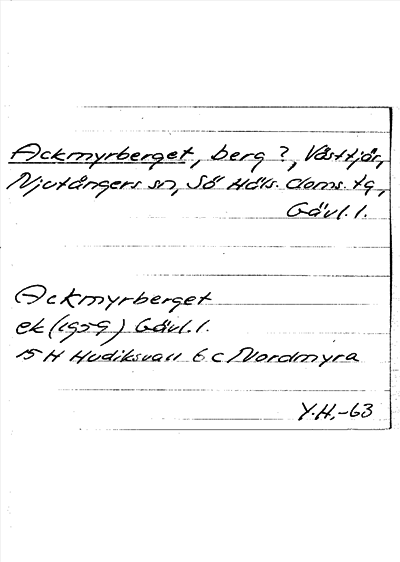 Ackmyrberget, berg?, Västtjär,
Njutångers sn, Sö Häls. doms. tg,
Gävl. l.
Ackmyrberget
ek (1959) Gävl. l.
15 H Hudiksvall 6 c Nordmyra
Y.H.-63